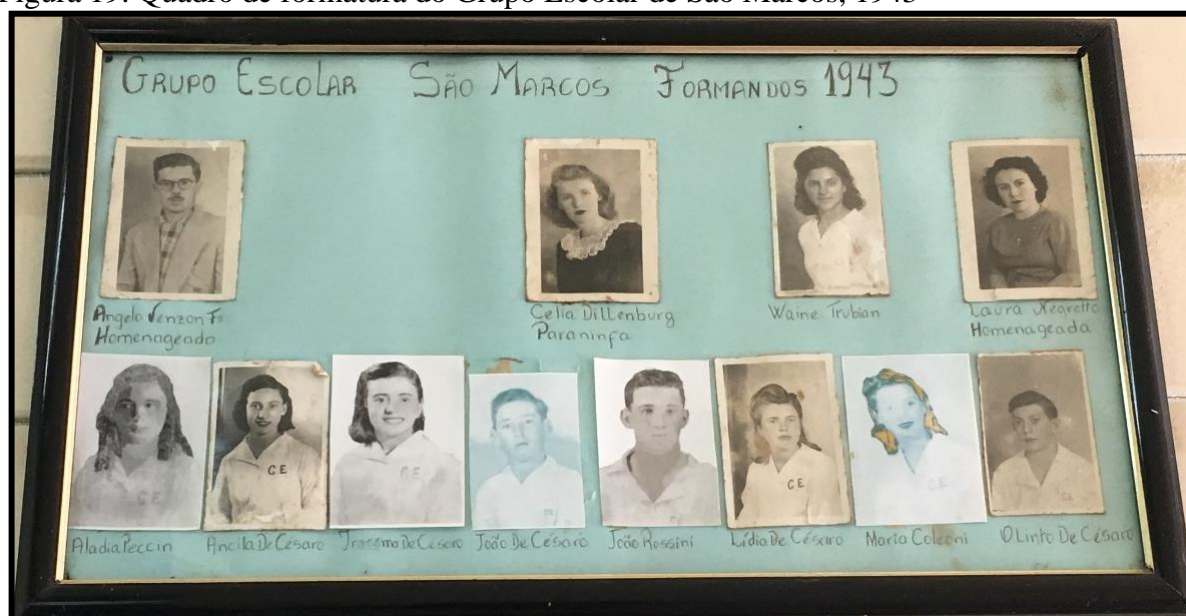 Figura 19: Quadro de formatura do Grupo Escolar de São Marcos, 1943
GRUPO ESCOLAR SÃO MARCOS FORMANDOS 1943
Angelo Venzon Fº
Homenageado
Celia Dillenburg
Paraninfa
Waine Trubian
Laura Negretto
Homenageada
G E
C E
G E
G E
G E
Aladia Peccin
Ancila De Césaro
Iracema De Césaro
João De Césaro
João Rossini
Lídia De Césaro
Maria Coleoni
Olinto De Césaro